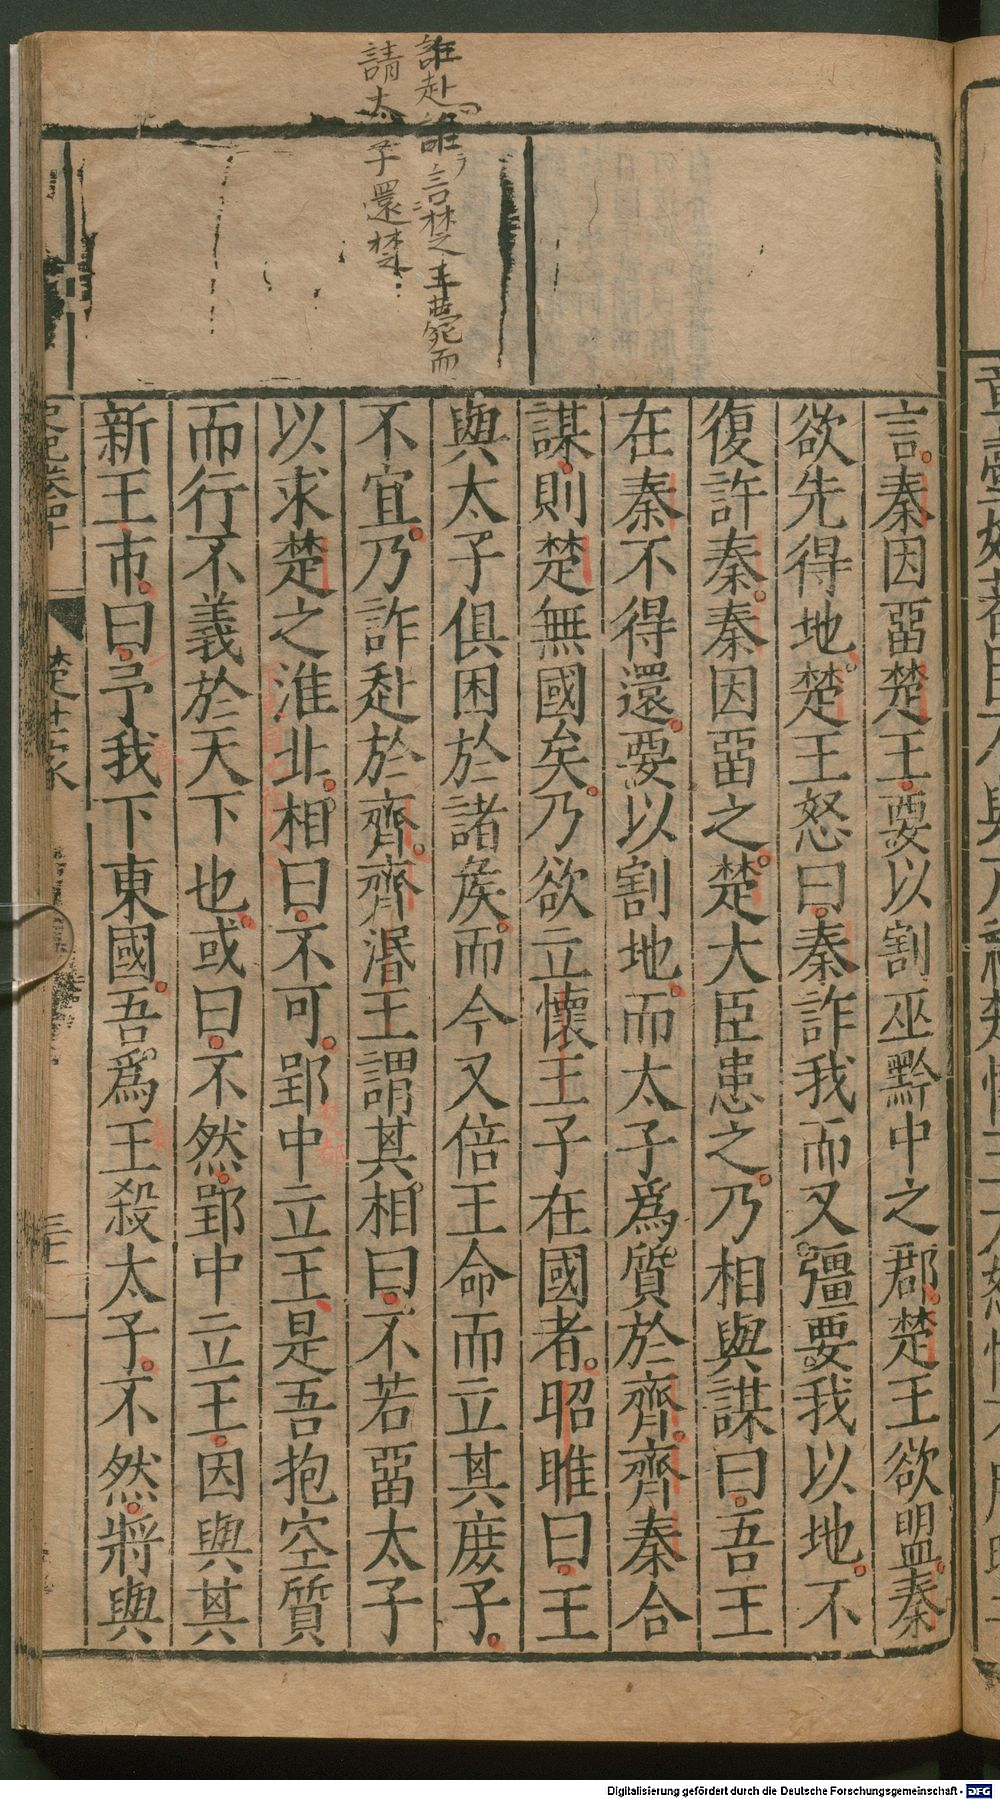 誰赴誰言楚王薨而
請太子還楚
言秦因畱楚王要以割巫黔中之郡楚王欲盟秦
欲先得地楚王怒曰秦詐我而又彊要我以地不
復許秦秦因畱之楚大臣患之乃相與謀曰吾王
在秦不得還要以割地而太子爲質於齊齊秦合
謀則楚無國矣乃欲立懷王子在國者昭雎曰王
與太子俱困於諸矦而今又倍王命而立其庻子
不宜乃詐赴於齊齊湣王謂其相曰不若畱太子
以求楚之淮北相曰不可郢中立王是吾抱空質
而行不義於天下也或曰不然郢中立王因與其
新王市曰予我下東國吾爲王殺太子不然將與
史記卷四十 楚世家
Digitalisierung gefördert durch die Deutsche Forschungsgemeinschaft - DFG